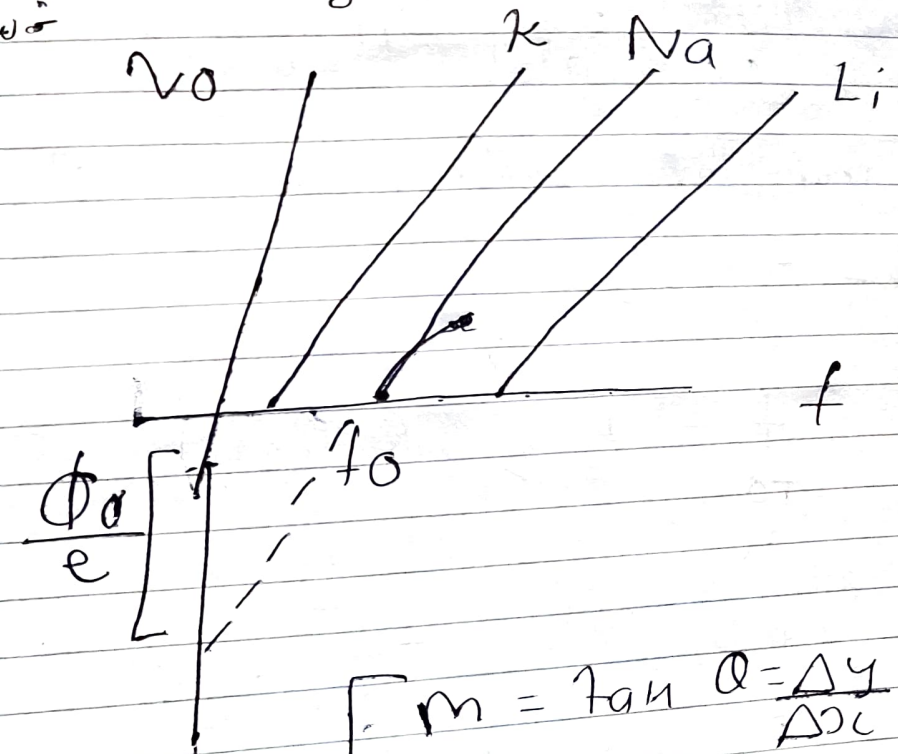 V0
K Na Li
f
f0
Φ0/e
m = tan θ = Δy/Δx